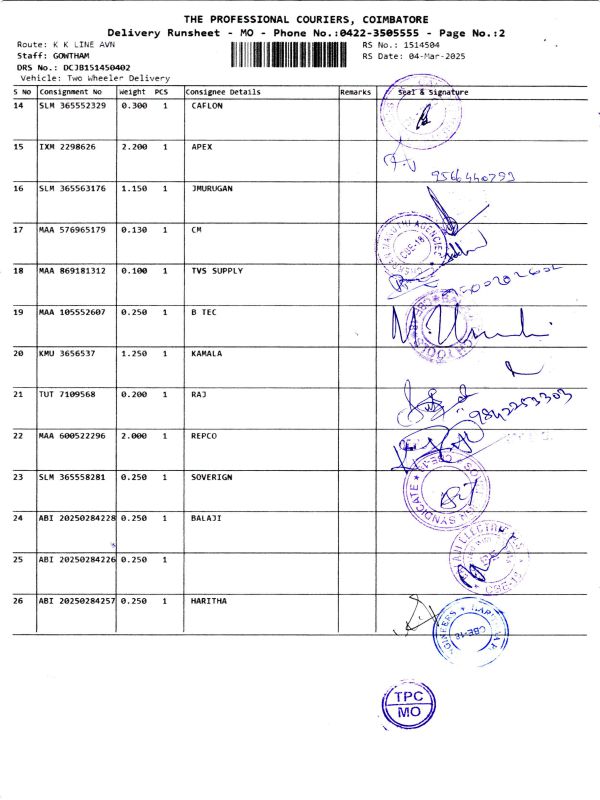 THE PROFESSIONAL COURIERS, COIMBATORE
Delivery Runsheet - MO - Phone No.:0422-3505555 - Page No.:2
Route: K K LINE AVN RS No.: 1514504
Staff: GOWTHAM RS Date: 04-Mar-2025
DRS No.: DCJB151450402
Vehicle: Two Wheeler Delivery
S No Consignment No Weight PCS Consignee Details Remarks Seal & Signature
14 SLM 365552329 0.300 1 CAFLON
15 IXM 2298626 2.200 1 APEX
9566440793
16 SLM 365563176 1.150 1 JMURUGAN
17 MAA 576965179 0.130 1 CM
CBE-18
18 MAA 869181312 0.100 1 TVS SUPPLY
19 MAA 105552607 0.250 1 B TEC
20 KMU 3656537 1.250 1 KAMALA
21 TUT 7109568 0.200 1 RAJ
9842253303
22 MAA 600522296 2.000 1 REPCO
23 SLM 365558281 0.250 1 SOVERIGN
SYNDICATE
24 ABI 20250284228 0.250 1 BALAJI
25 ABI 20250284226 0.250 1
26 ABI 20250284257 0.250 1 HARITHA
CBE-18
TPC
MO